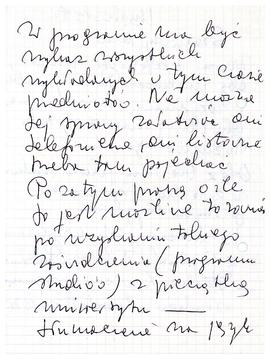 W programie ma być
wykaz wszystkich
wykładanych w tym czasie
przedmiotów. Nie można
tej sprawy załatwić ani
telefonicznie ani listownie
trzeba tam pojechać
Poza tym proszę o ile
to jest możliwe to zaraz
po uzyskaniu takiego
zaświadczenia (programu
studiów) z pieczątką
uniwersytetu —
tłumaczenie na język